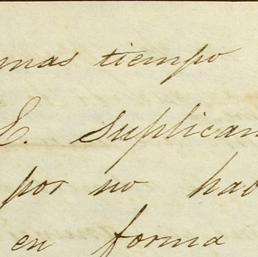 mas tiempo
E. Suplican
por no hab
en forma